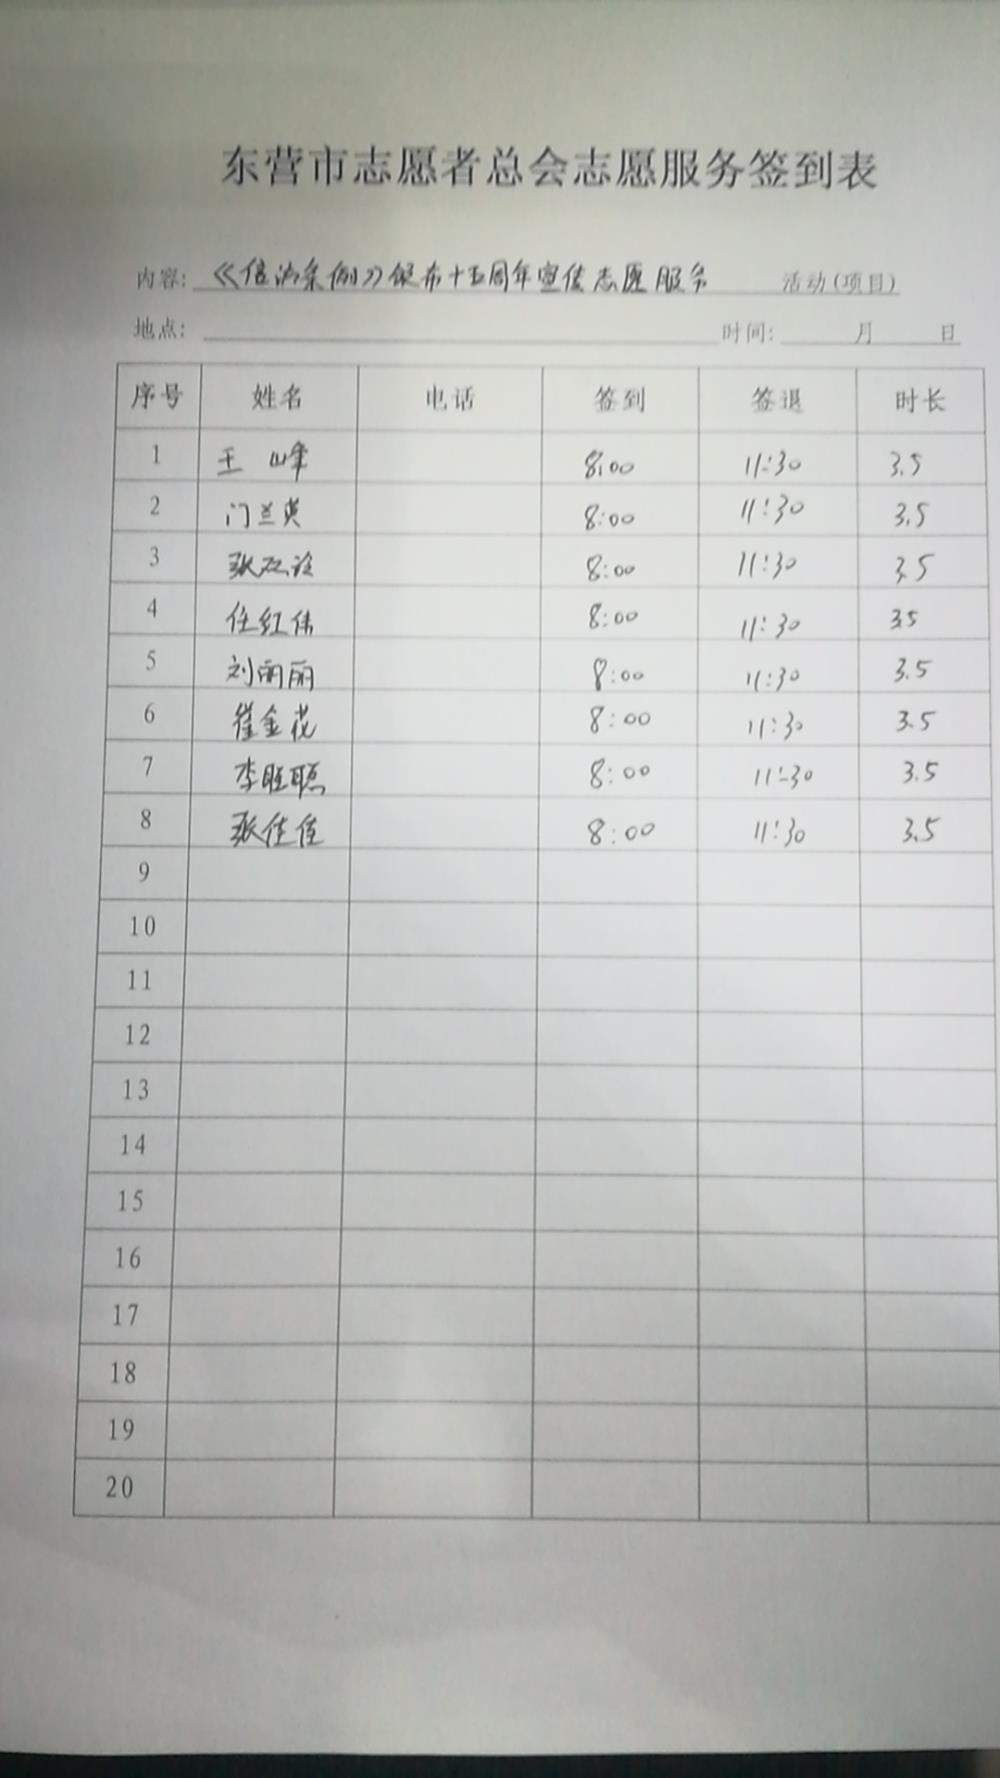 东营市志愿者总会志愿服务签到表
内容: 《信访条例》颁布十五周年宣传志愿服务 活动(项目)
地点: 时间: 月 日
序号 姓名 电话 签到 签退 时长
1 王峰 8:00 11:30 3.5
2 门兰英 8:00 11:30 3.5
3 张 8:00 11:30 3.5
4 任红伟 8:00 11:30 3.5
5 刘丽丽 8:00 11:30 3.5
6 崔金花 8:00 11:30 3.5
7 李胜聪 8:00 11:30 3.5
8 张佳佳 8:00 11:30 3.5
9
10
11
12
13
14
15
16
17
18
19
20